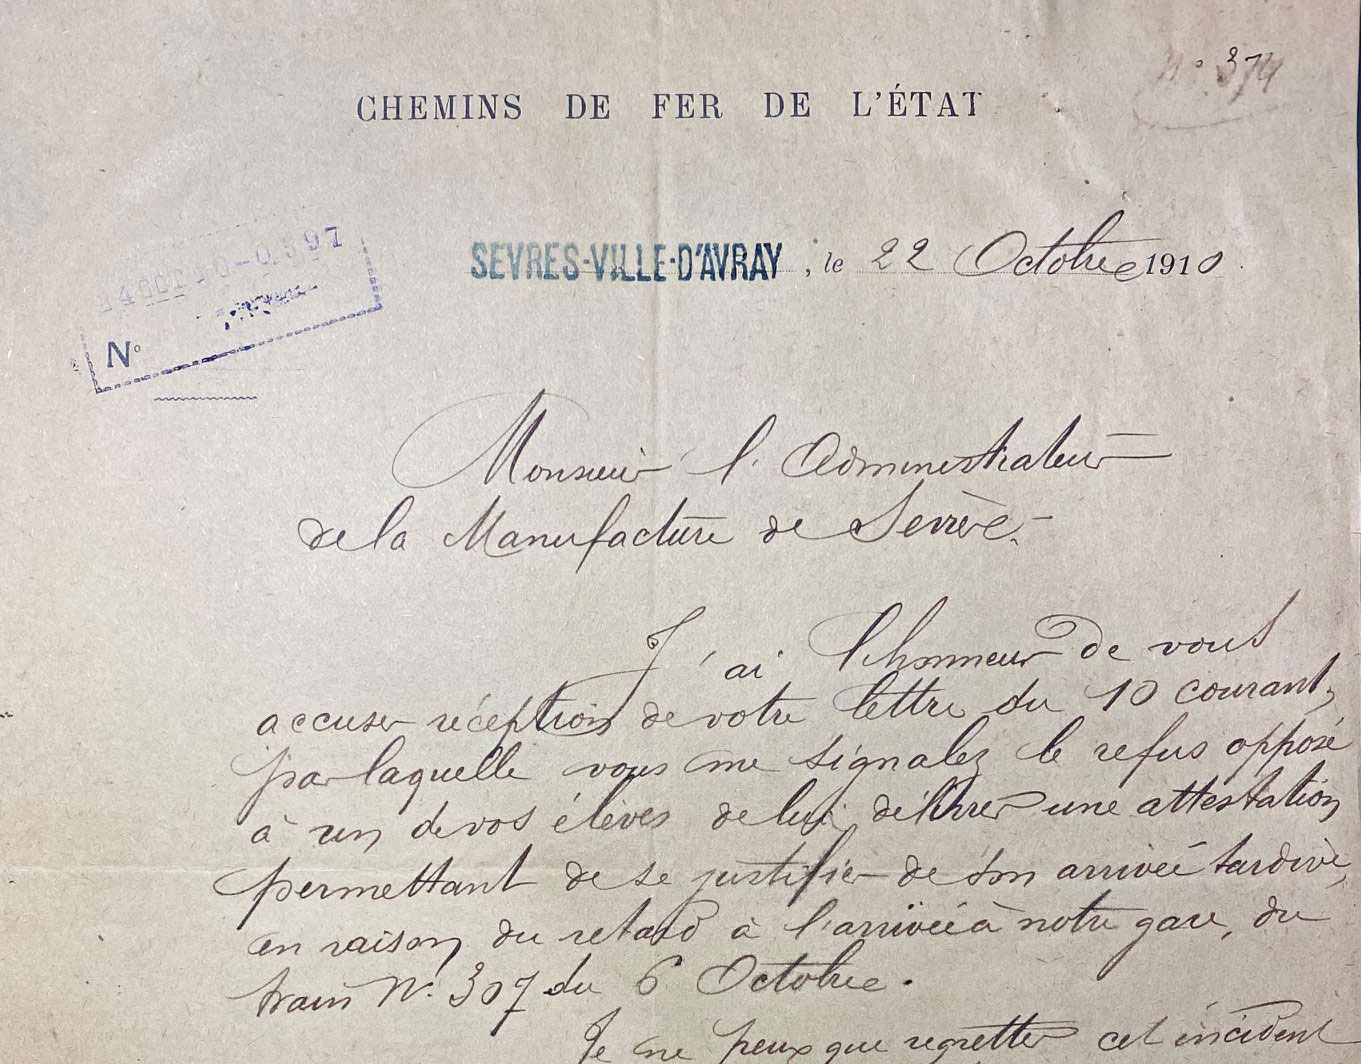 N° 374
CHEMINS DE FER DE L'ÉTAT
SEVRES-VILLE-D'AVRAY, le 22 Octobre 1910
N°
Monsieur l'Administrateur
de la Manufacture de Sevrès.
J'ai l'honneur de vous
accuser réception de votre lettre du 10 courant,
par laquelle vous me signalez le refus opposé
à un de vos élèves de lui délivrer une attestation
permettant de se justifier de son arrivée tardive,
en raison du retard à l'arrivée à notre gare, du
train N° 307 du 6 Octobre.
Je ne peux que regretter cet incident